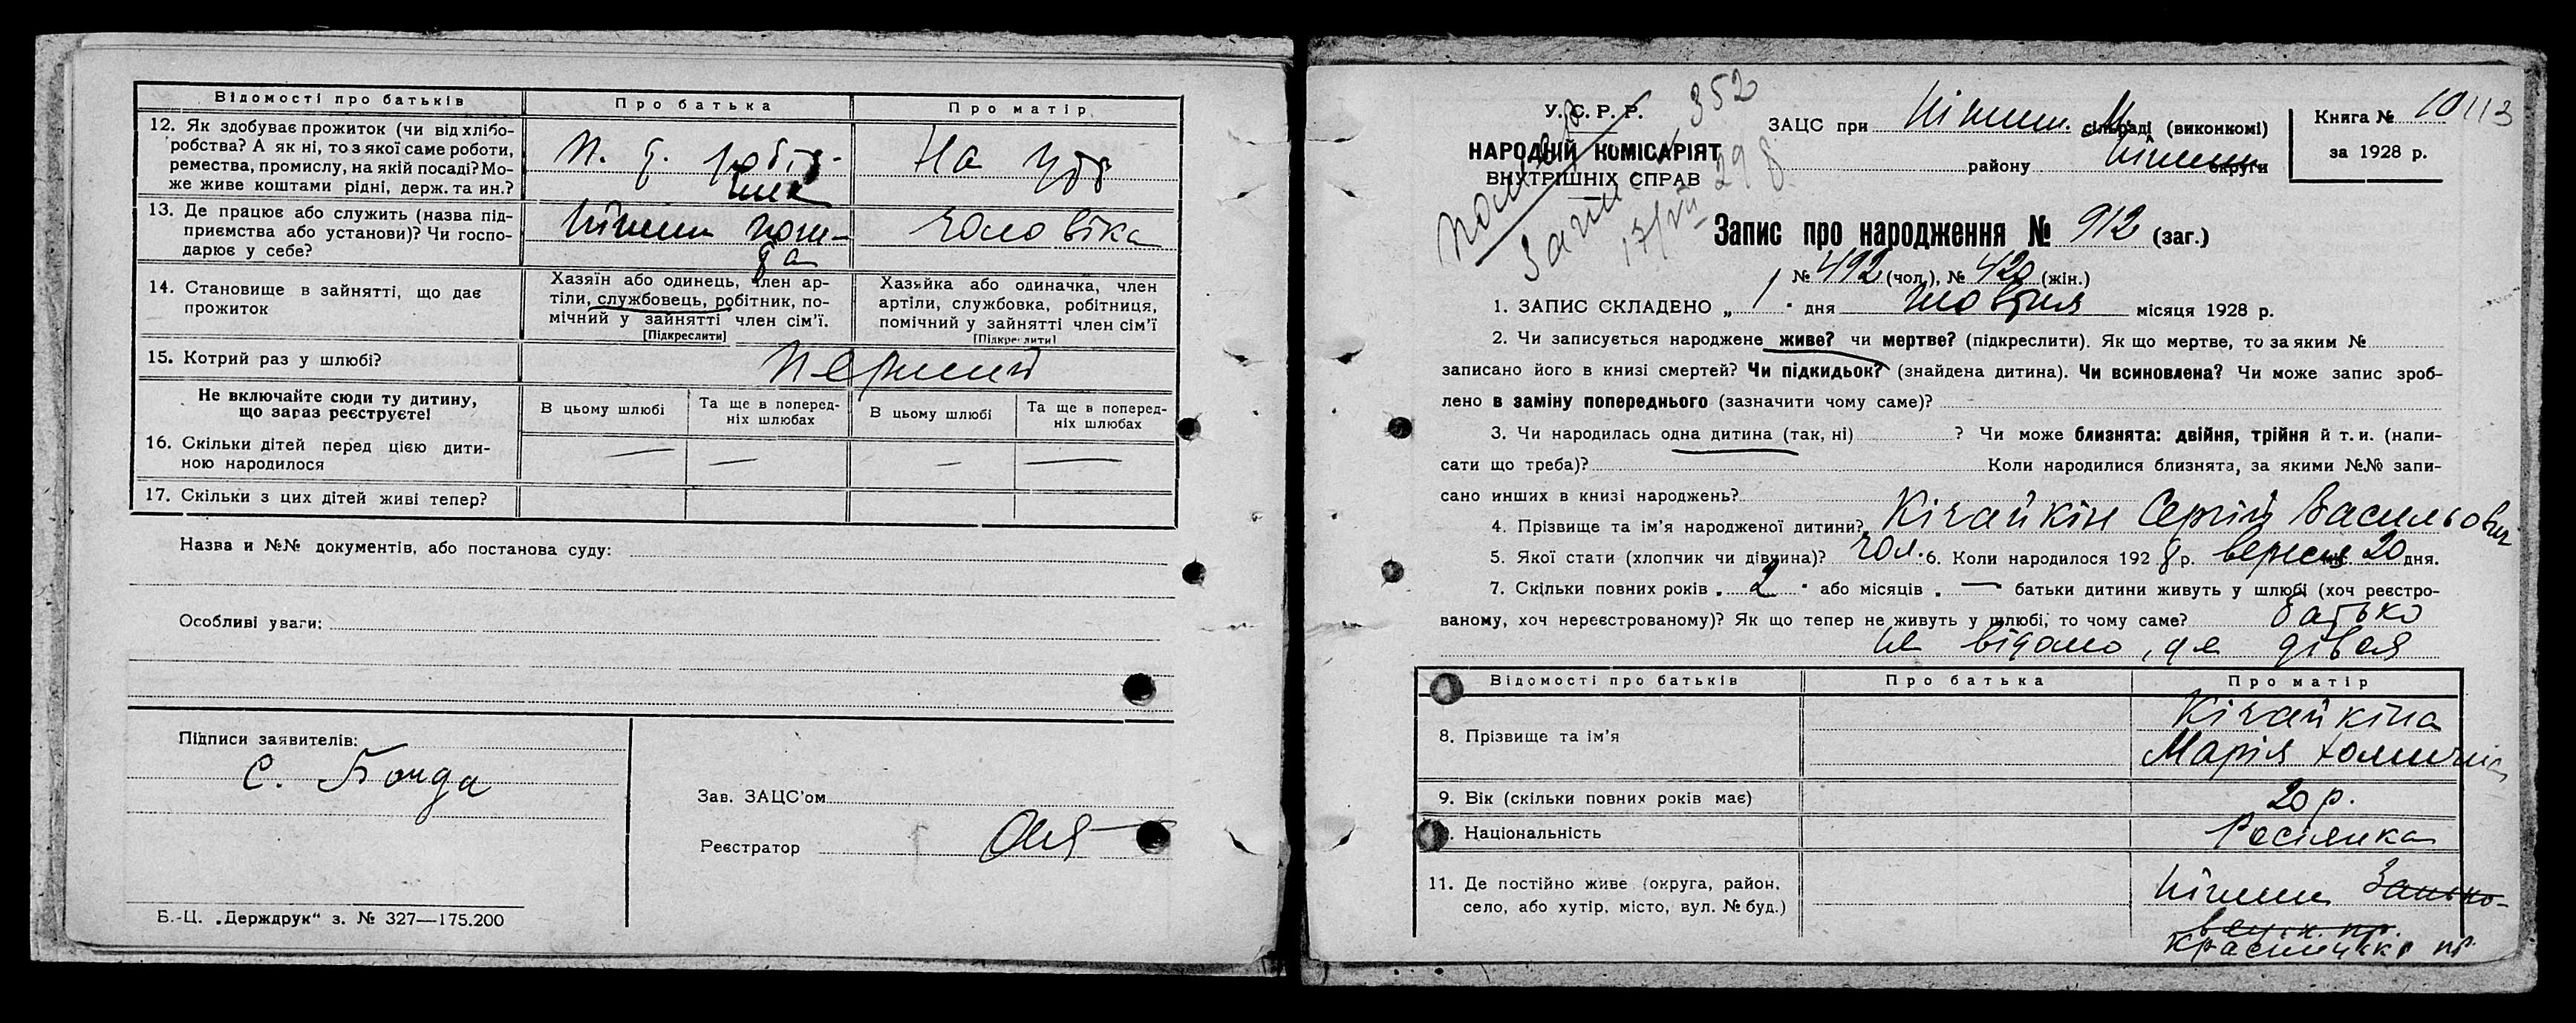 Відомості про батьків
Про батька
Про матір
12. Як здобуває прожиток (чи від хлібо-
робства? А як ні, то з якої саме роботи,
ремества, промислу, на якій посаді? Мо-
же живе коштами рідні, держ. та ин.?
На утр
13. Де працює або служить (назва під-
приємства або установи)? Чи госпо-
дарює у себе?
чоловіка
14. Становище в зайнятті, що дає
прожиток
Хазяїн або одинець, член ар-
тіли, службовець, робітник, по-
мічний у зайнятті член сім'ї.
[Підкреслити]
Хазяйка або одиначка, член
артіли, службовка, робітниця,
помічний у зайнятті член сім'ї
[Підкреслити]
15. Котрий раз у шлюбі?
перший
Не включайте сюди ту дитину,
що зараз реєструєте!
В цьому шлюбі
Та ще в поперед-
ніх шлюбах
В цьому шлюбі
Та ще в поперед-
ніх шлюбах
16. Скільки дітей перед цією дити-
ною народилося
— — — —
17. Скільки з цих дітей живі тепер?
Назва и №№ документів, або постанова суду:
Особливі уваги:
Підписи заявителів:
С. Бонда
Зав. ЗАЦС'ом
Реєстратор
Б.-Ц. „Держдрук“ з. № 327—175.200
352
У. С. Р. Р.
НАРОДНІЙ КОМІСАРІЯТ
ВНУТРІШНІХ СПРАВ
помер
17/VII 29 р.
ЗАЦС при Ніжин. М. сільраді (виконкомі)
району Ніжин округи
Книга № 10
113
за 1928 р.
Запис про народження № 912 (заг.)
№ 492 (чол.), № 420 (жін.)
1. ЗАПИС СКЛАДЕНО „ 1 " дня жовтня місяця 1928 р.
2. Чи записується народжене живе? чи мертве? (підкреслити). Як що мертве, то за яким №
записано його в книзі смертей? Чи підкидьок? (знайдена дитина). Чи всиновлена? Чи може запис зроб-
лено в заміну попереднього (зазначити чому саме)?
3. Чи народилась одна дитина (так, ні) ? Чи може близнята: двійня, трійня й т. и. (напи-
сати що треба)? Коли народилися близнята, за якими №№ запи-
сано инших в книзі народжень?
4. Прізвище та ім'я народженої дитини? Кічайкін Сергій Васильович
5. Якої стати (хлопчик чи дівчина)? чол. 6. Коли народилося 1928 р. вересня 20 дня.
7. Скільки повних років „ 2 " або місяців „ — батьки дитини живуть у шлюбі (хоч реєстро-
ваному, хоч нереєстрованому)? Як що тепер не живуть у шлюбі, то чому саме? батько
не відомо, де дівся
Відомості про батьків
Про батька
Про матір
8. Прізвище та ім'я
Кічайкіна
Марія
9. Вік (скільки повних років має)
20 р.
Національність
Росіянка
11. Де постійно живе (округа, район,
село, або хутір, місто, вул. № буд.)
Ніжин